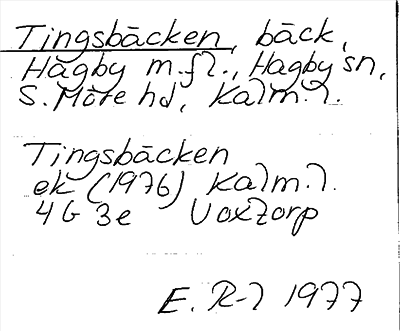 Tingsbäcken, bäck,
Hagby m.fl., Hagby sn,
S. Möre hd, Kalm.l.
Tingsbäcken
ek (1976) Kalm.l.
4G 3e Voxtorp
E. R-l 1977